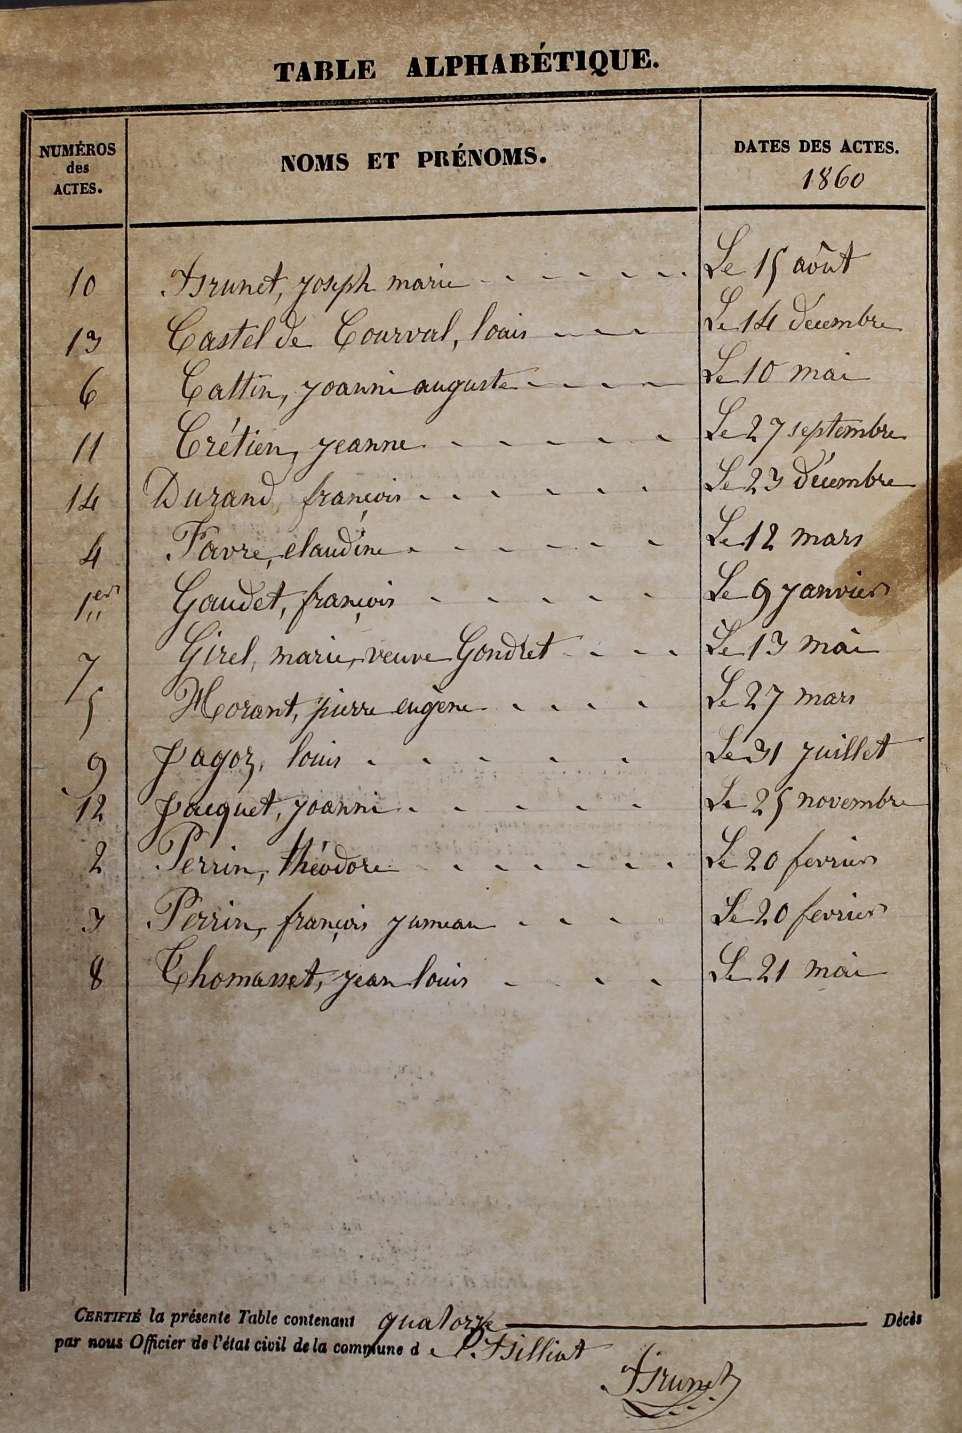 TABLE ALPHABÉTIQUE.
NUMÉROS des ACTES. NOMS ET PRÉNOMS. DATES DES ACTES. 1860
10 Brunet, joseph marie Le 15 août
13 Castel de Courval, louis Le 14 décembre
6 Cattin, joanni auguste Le 10 mai
11 Crétien, jeanne Le 27 septembre
14 Durand, françois Le 23 décembre
4 Favre, claudine Le 12 mars
1er Gaudet, françois Le 9 janvier
7 Girel, marie, veuve Gondret Le 13 mai
5 Morant, pierre eugène Le 27 mars
9 pagoz, louis Le 31 juillet
12 paequet, joanni Le 25 novembre
2 Perrin, théodore Le 20 fevrier
3 Perrin, françois jumeau Le 20 fevrier
8 Thomasset, jean louis Le 21 mai
CERTIFIÉ la présente Table contenant quatorze Décès
par nous Officier de l'état civil de la commune d
Brunet